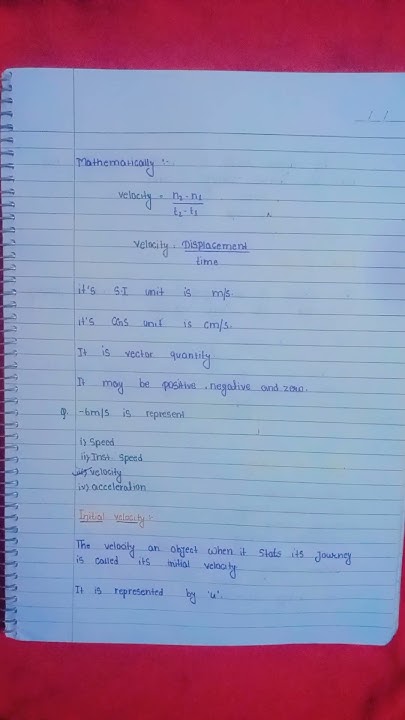 / /
Mathematically :-
velocity = n2 - n1
t2 - t1
Velocity = Displacement
time
it's S.I unit is m/s.
it's CGS unit is cm/s.
It is vector quantity
It may be positive, negative and zero.
Q. -6m/s is represent
i) Speed
ii) Inst. Speed
iii) velocity
iv) acceleration
Initial velocity :-
The velocity an object when it stats its journey
is called its initial velocity
It is represented by 'u'.